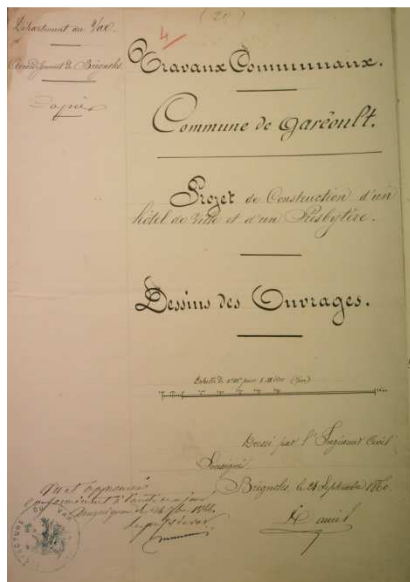 Département du Var.
Arrondissement de Brignoles
Copie
(2e)
4
Travaux Communaux.
Commune de Garéoult.
Projet de Construction d'un
hôtel de Ville et d'un Presbytère.
Dessins des Ouvrages.
Echelle de
Dressé par l'Ingénieur Civil
Soussigné
Brignoles, le 24 Septembre
Vu et approuvé
conformément à l'arrêté ce jour
Draguignan le
Le préfet